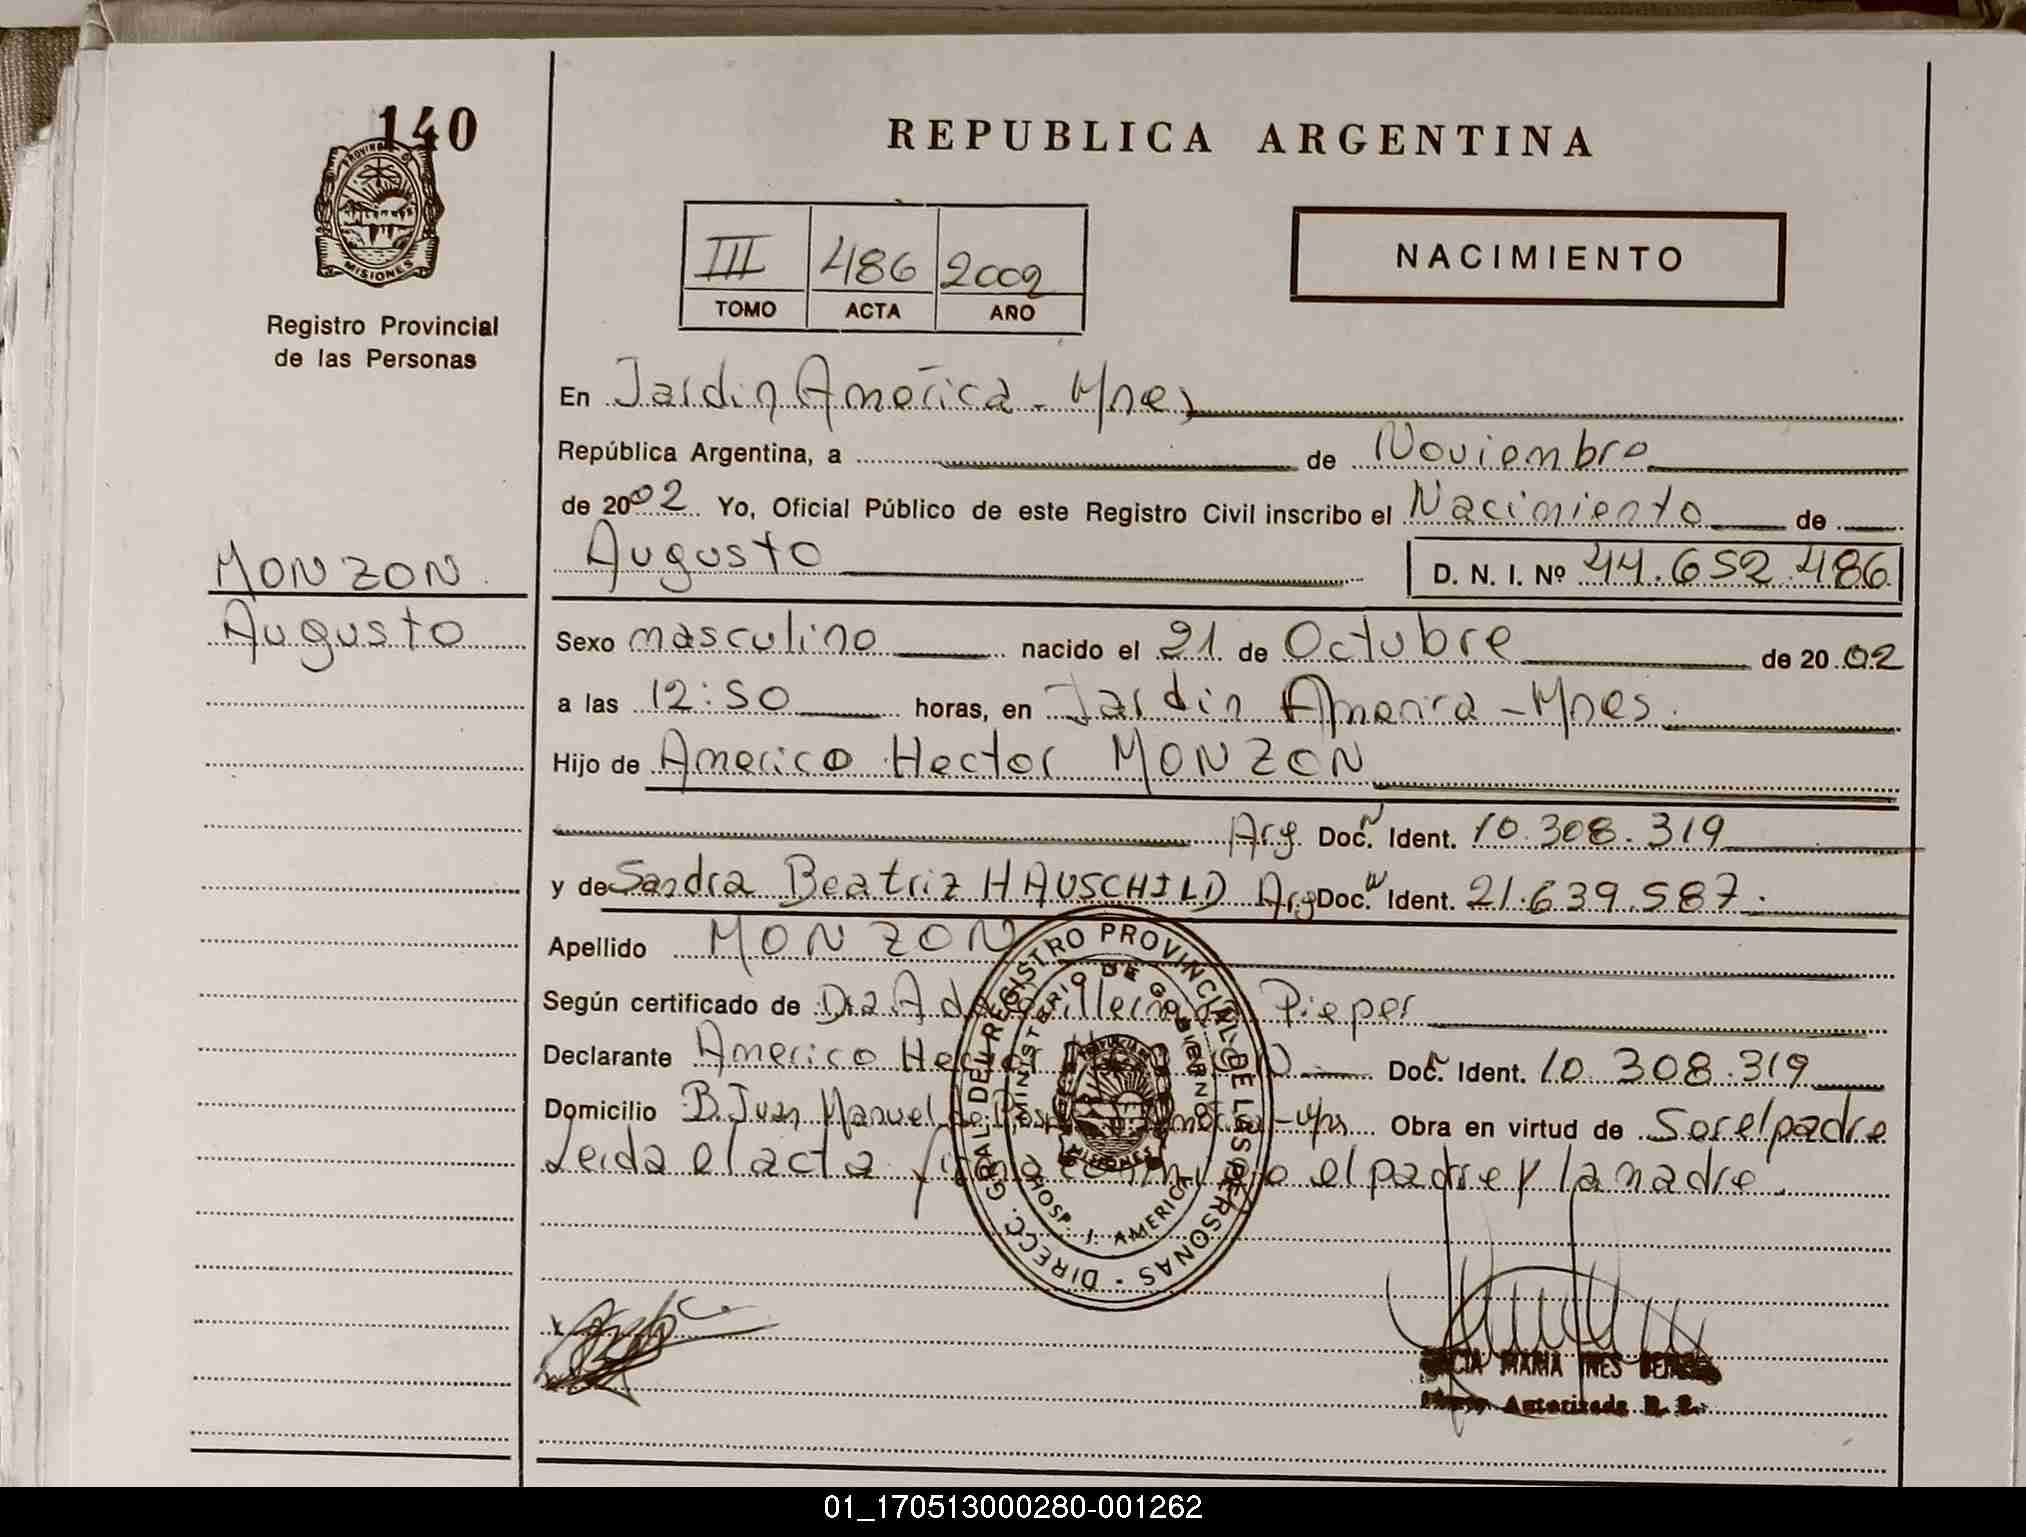 140
PROVINCIA DE
MISIONES
Registro Provincial
de las Personas
MONZON
Augusto
REPUBLICA ARGENTINA
III 486 2002
TOMO ACTA AÑO
NACIMIENTO
En Jardin América - Mnes
República Argentina, a de Noviembre
de 2002 Yo, Oficial Público de este Registro Civil inscribo el Nacimiento de
Augusto D. N. I. Nº 44.652.486
Sexo masculino nacido el 21 de Octubre de 20 02
a las 12:50 horas, en Jardin America - Mnes.
Hijo de Americo Hector MONZON
Arg. Doc. Ident. 10.308.319
y de Sandra Beatriz HAUSCHILD Arg Doc. Ident. 21.639.587.
Apellido MONZON
Según certificado de Dra Pieper
Declarante Americo Hector Doc. Ident. 10.308.319
Domicilio B. Juan Manuel de Obra en virtud de Ser el padre
Leida el acta el padre y la madre.
DIRECC. GRAL. DEL REGISTRO PROVINCIAL DE LAS PERSONAS
MINISTERIO DE GOBIERNO
MISIONES
HOSP. J. AMERICA
MARIA INES
Autorizada
01_170513000280-001262